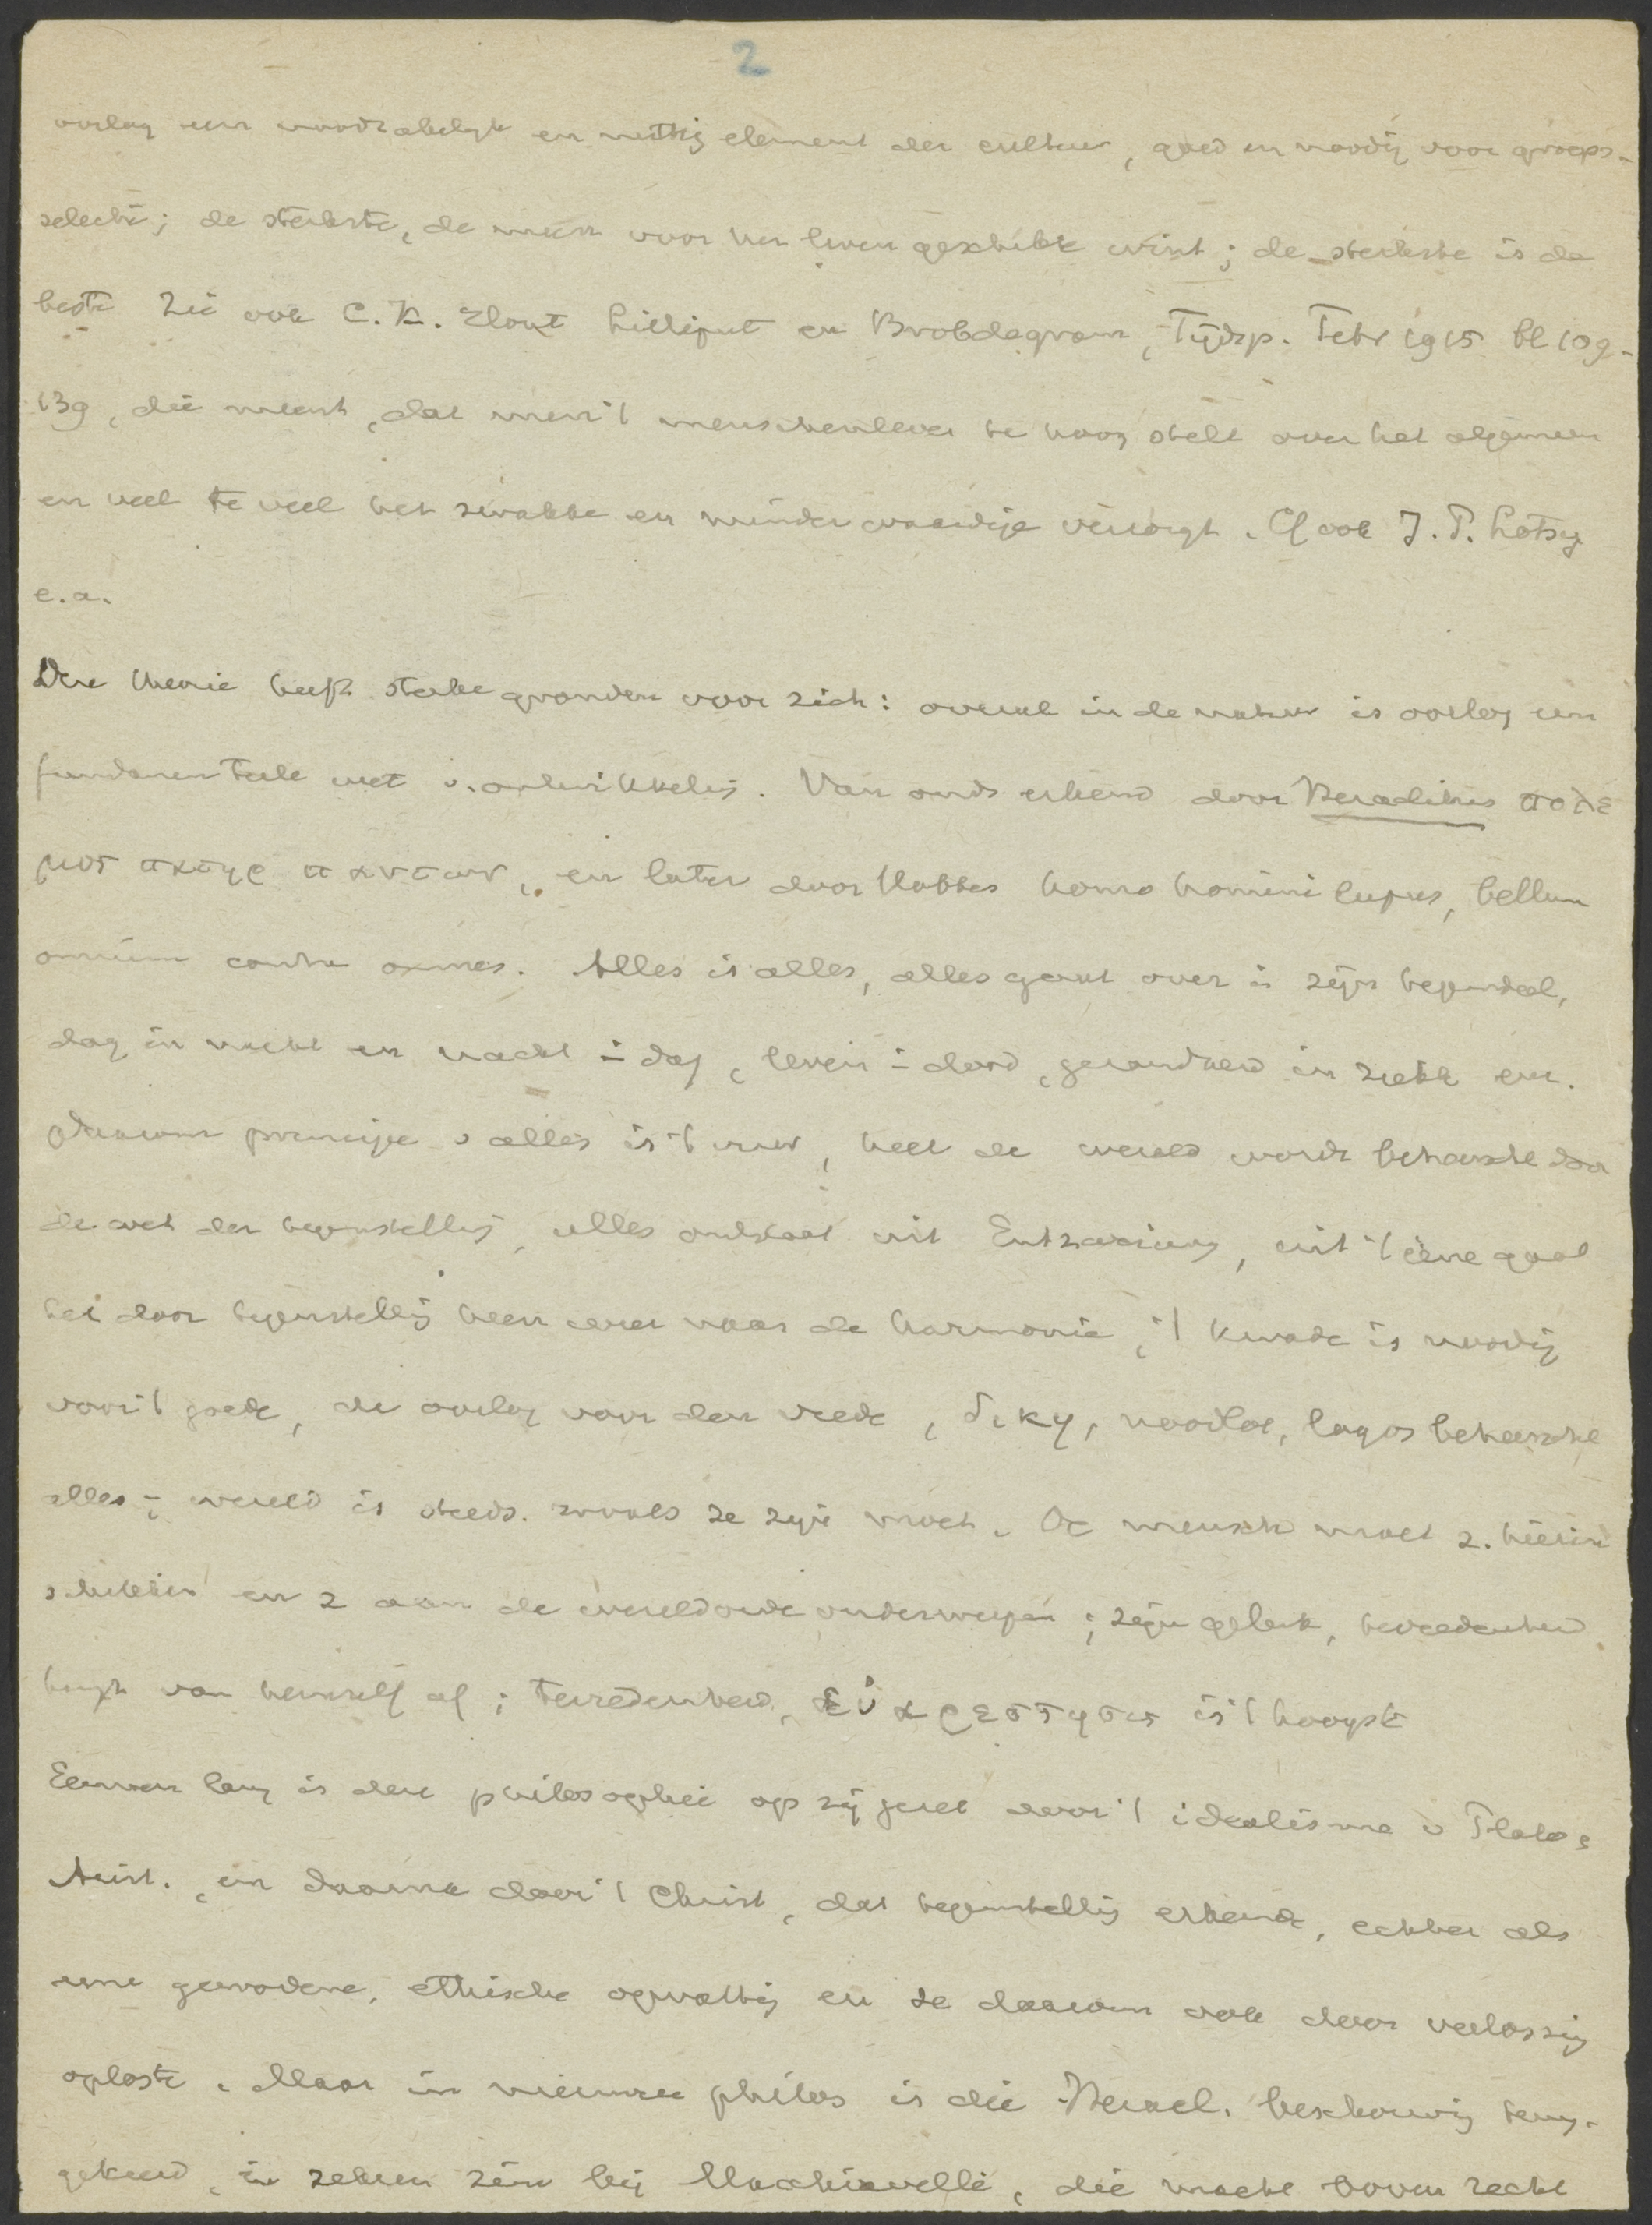 2
oorlog een noodzakelijk en nuttig element der cultuur, goed en noodig voor groeps-
selectie; de sterkste, de meest voor het leven geschikte wint; de sterkste is de
beste Zie ook C.K. Elout Lilliput en Brobdagnam, Tijdsp. Febr 1915 bl 109-
139, die meent, dat men 't menschenleven te hoog stelt over het algemeen
en veel te veel het zwakke en minderwaardige verzorgt. Cf ook J.P. Lotsy
e.a.
Deze theorie heeft sterke gronden voor zich: overal in de natuur is oorlog een
fundamenteele wet v. ontwikkeling. Van ouds erkend door Heraclitus πολε
μος πατηρ παντων, en later door Hobbes homo homini lupus, bellum
omnium contra omnes. Alles is alles, alles gaat over in zijn tegendeel,
dag in nacht en nacht in dag, leven in dood, gezondheid in ziekte enz.
Daarom principe v alles is 't vuur, heel de wereld wordt beheerscht door
de wet der tegenstelling, alles ontstaat uit Entzweiung, uit 't ééne gaat
het door tegenstelling heen weer naar de harmonie, 't kwade is noodig
voor 't goede, de oorlog voor den vrede, δικη, noodlot, logos beheerscht
alles; wereld is steeds zooals ze zijn moet. De mensch moet z. hierin
schikken en z aan de wereldorde onderwerpen; zijn geluk, tevredenheid
hangt van hemzelf af; tevredenheid, εὐαρεστησις is 't hoogste
Eeuwen lang is deze philosophie op zij gezet door 't idealisme v Plato,
Arist., en daarna door 't Christ, dat tegenstelling erkende, echter als
eene gewordene, ethische opvatting en ze daarom ook door verlossing
oploste. Maar in nieuwere philos is die Heracl. beschouwing terug-
gekeerd, in zekeren zin bij Machiavelli, die macht boven recht